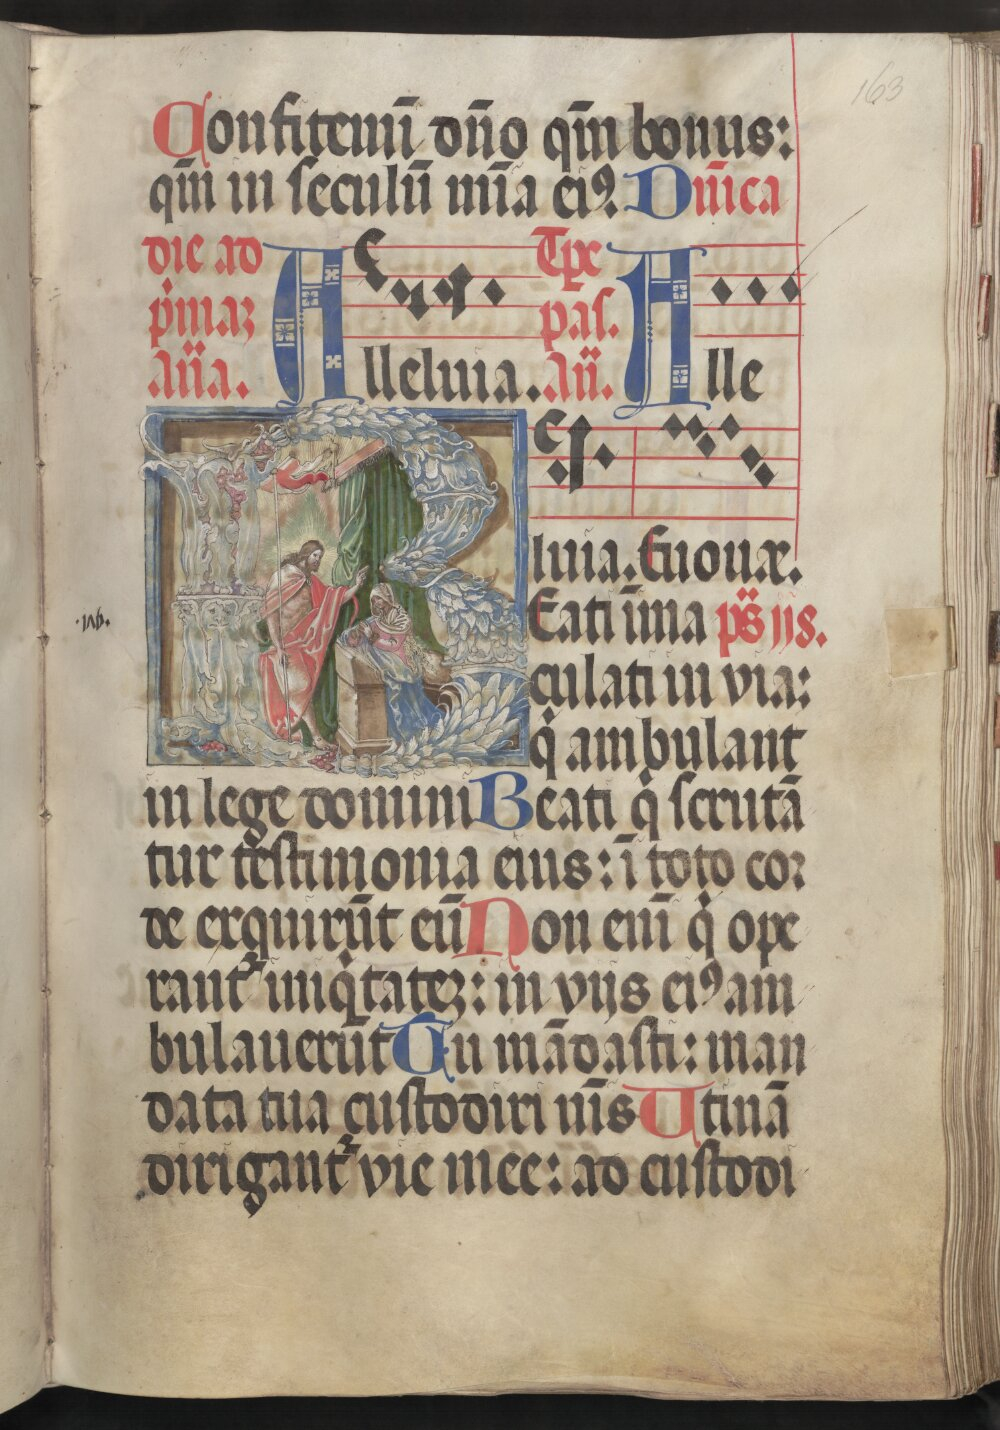 163
Confitemī dño qm̄ bonus:
qm̄ in seculū mīa eiꝰ. Dn̄ica
die ad
p̄maꝫ
Añа.
Alleluia.
Tpe
pas.
Añ.
Alle
luia. Euouæ.
BEati īma ps̄ ijs.
culati in via:
q̇ ambulant
in lege domini Beati q̇ scrutā
tur testimonia eius: ī toto coꝛ
de exquirūt eū Non enī q̇ ope
rantᷣ iniq̇tateꝫ: in vijs eiꝰ am
bulauerūt Tu mādasti: man
data tua custodiri nīs Utinā
dirigantᷣ vie mee: ad custodi